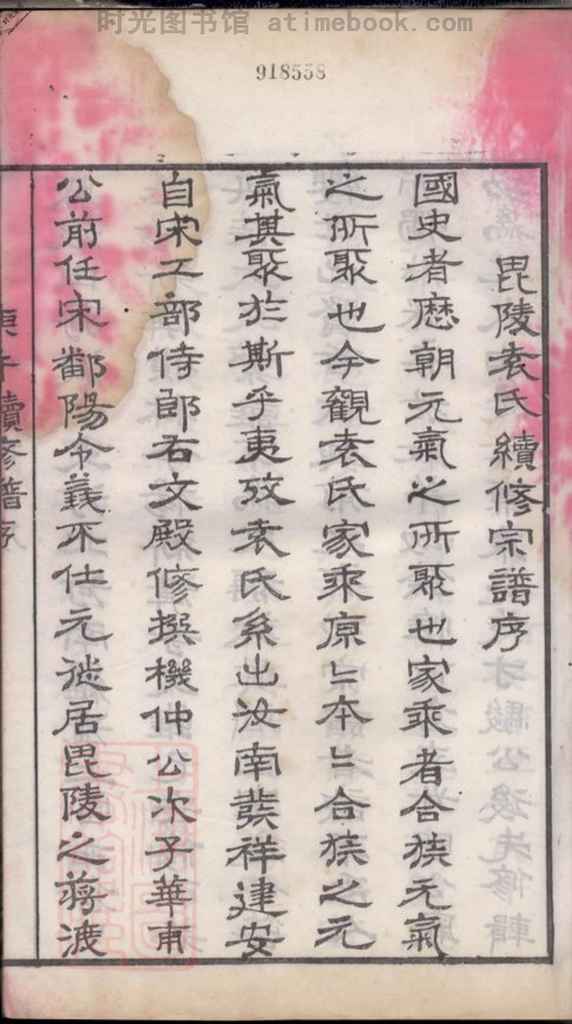 时光图书馆 atimebook.com
918558
毘陵袁氏續修宗譜序
國史者歷朝元氣之所聚也家乘者合族元氣
之所聚也今觀袁氏家乘原〻本〻合族之元
氣其聚於斯乎夷攷袁氏系出汝南發祥建安
自宋工部侍郎右文殿修撰機仲公次子華甫
公前任宋鄱陽令義不仕元徙居毘陵之蔣渡
庚子續修譜序